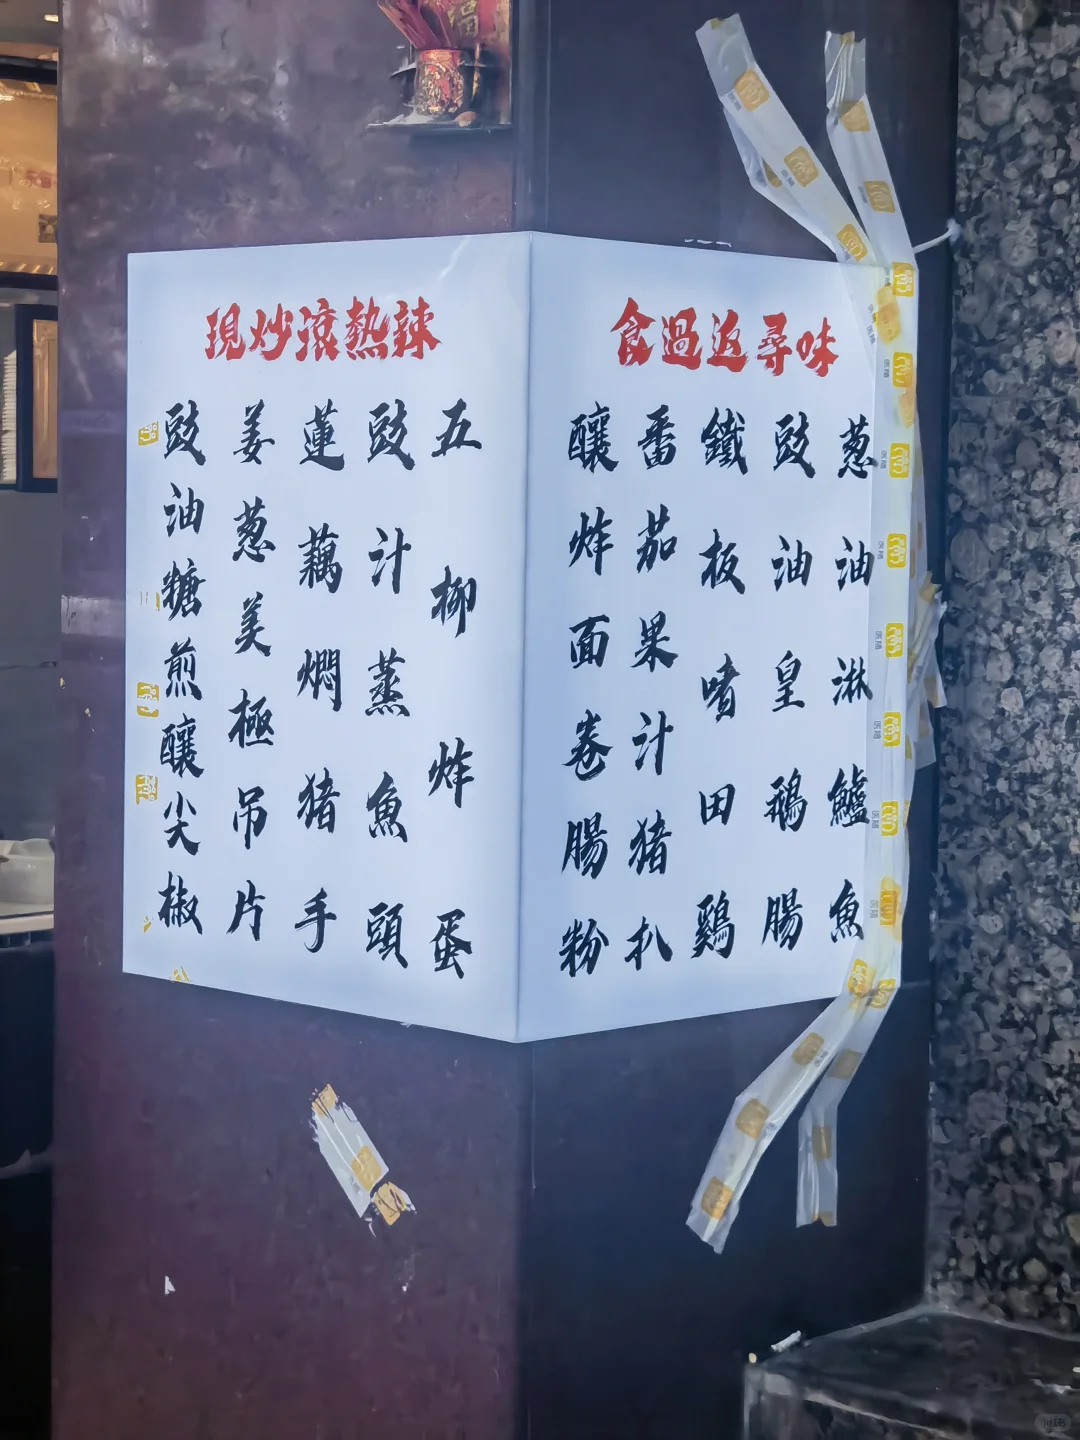 現炒滾熱辣
五柳炸蛋
豉汁蒸魚頭
蓮藕燜猪手
姜葱美極吊片
豉油糖煎釀尖椒
食過返尋味
葱油淋鱸魚
豉油皇鵝腸
鐵板啫田鷄
番茄果汁猪扒
釀炸面卷腸粉